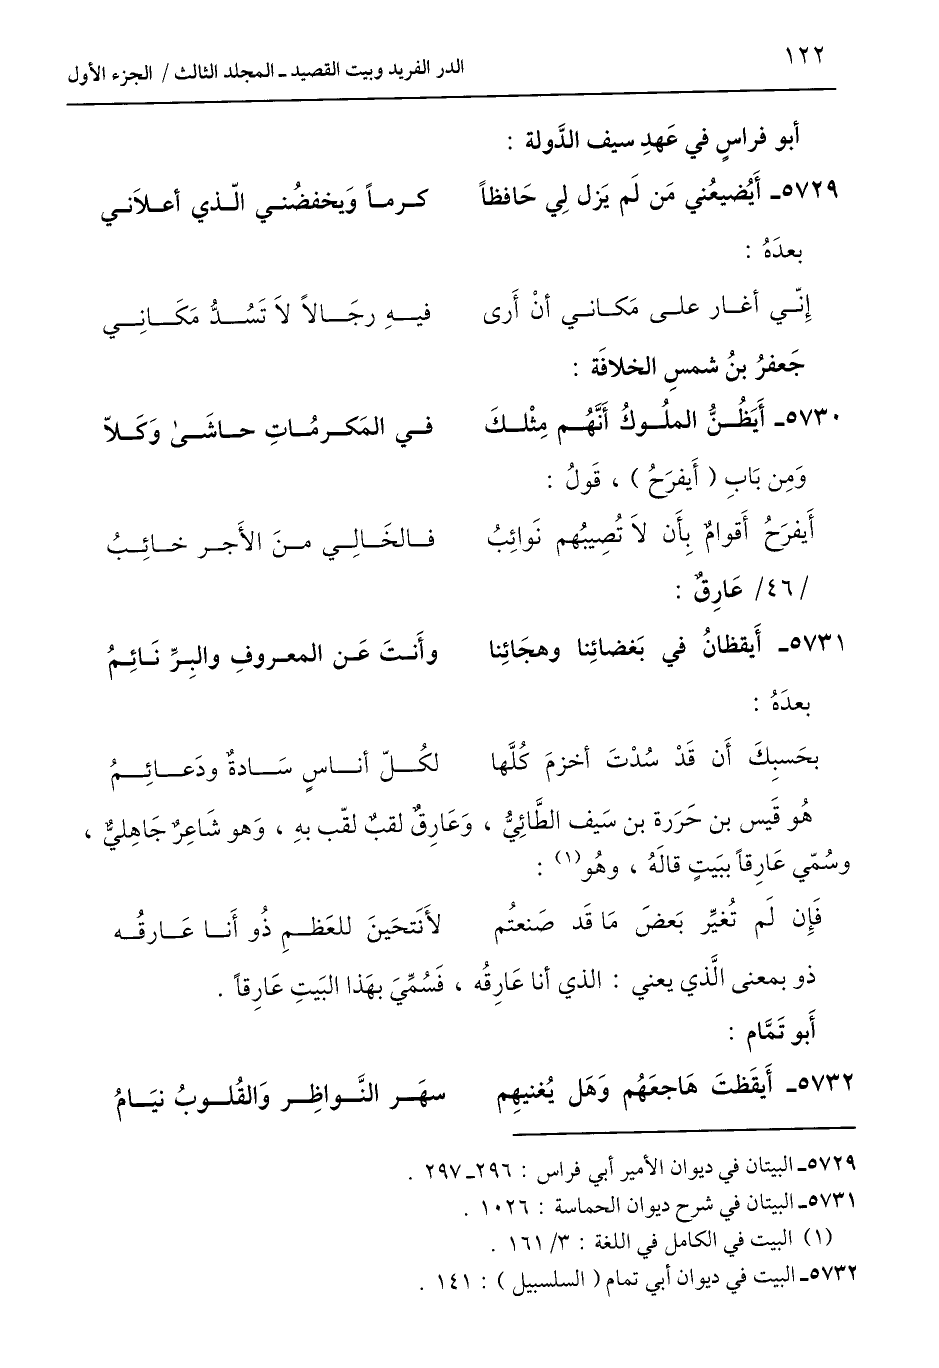 ١٢٢
الدر الفريد وبيت القصيد ـ المجلد الثالث / الجزء الأول
أبو فراسٍ في عَهدِ سيف الدَّولة :
٥٧٢٩ـ أَيُضيعُني مَن لَم يَزل لِي حَافظاً كرمـاً وَيخفضُـنـي الّـذي أعـلاَنـي
بعدَهُ :
إنّـي أغـار علـى مَكـانـي أنْ أَرى فيـهِ رجَـالاً لاَ تَسُـدُّ مَكَـانِـي
جَعفرُ بنُ شمسِ الخلافَة :
٥٧٣٠ـ أَيَظُـنُّ الملُـوكُ أَنَّهُـم مِثْلـكَ فـي المَكـرمُـاتِ حـاشَـىٰ وَكَـلاّ
وَمِن بَابِ ( أَيفرَحُ ) ، قَولُ :
أَيفرَحُ أَقوامٌ بِأَن لاَ تُصِيبُهم نَوائِبُ فـالخَـالِـي مـنَ الأَجـر خـائِـبُ
/٤٦/ عَارِقٌ :
٥٧٣١ـ أَيقظانُ في بَغضائِنا وهجَائِنا وأَنـتَ عَـن المعـروفِ والبِـرِّ نَـائِـمُ
بعدَهُ :
بحَسبِكَ أَن قَدْ سُدْتَ أخزمَ كُلَّها لكُـلّ أنـاسٍ سَـادةٌ ودَعـائِـمُ
هُو قَيس بن حَررة بن سَيف الطَّائِيُّ ، وَعَارِقٌ لقبٌ لقّب بهِ ، وَهو شَاعِرٌ جَاهليٌّ ،
وسُمّي عَارقاً ببَيتٍ قالَهُ ، وهُو(١) :
فَإِن لَم تُغيِّر بَعضَ مَا قَد صَنعتُم لأَنتحَينَ للعَظـمِ ذُو أَنـا عَـارقُـه
ذو بمعنى الَّذي يعني : الذي أنا عَارِقُه ، فَسُمِّيَ بهَذا البَيتِ عَارِقاً .
أَبو تَمَّام :
٥٧٣٢ـ أَيقَظتَ هَاجعَهُم وَهَل يُغنيهِم سهَـر النَّـواظِـر وَالقُلـوبُ نيَـامُ
٥٧٢٩ـ البيتان في ديوان الأمير أبي فراس : ٢٩٦ـ ٢٩٧ .
٥٧٣١ـ البيتان في شرح ديوان الحماسة : ١٠٢٦ .
(١) البيت في الكامل في اللغة : ٣/ ١٦١ .
٥٧٣٢ـ البيت في ديوان أبي تمام ( السلسبيل ) : ١٤١ .